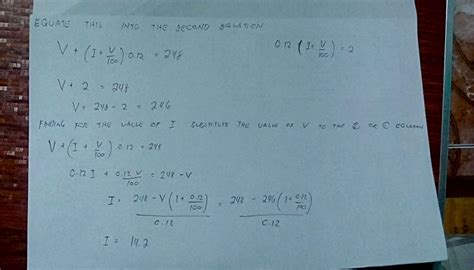 EQUATE THIS INTO THE SECOND EQUATION
V + (I + V/100) 0.12 = 248
0.12 (I + V/100) = 2
V + 2 = 248
V = 248 - 2 = 246
FINDING FOR THE VALUE OF I SUBSTITUTE THE VALUE OF V TO THE ② OR ① EQUATION
V + (I + V/100) 0.12 = 248
0.12 I + 0.12 V/100 = 248 - V
I = 248 - V (1 + 0.12/100) / 0.12 = 248 - 246 (1 + 0.12/100) / 0.12
I = 14.2